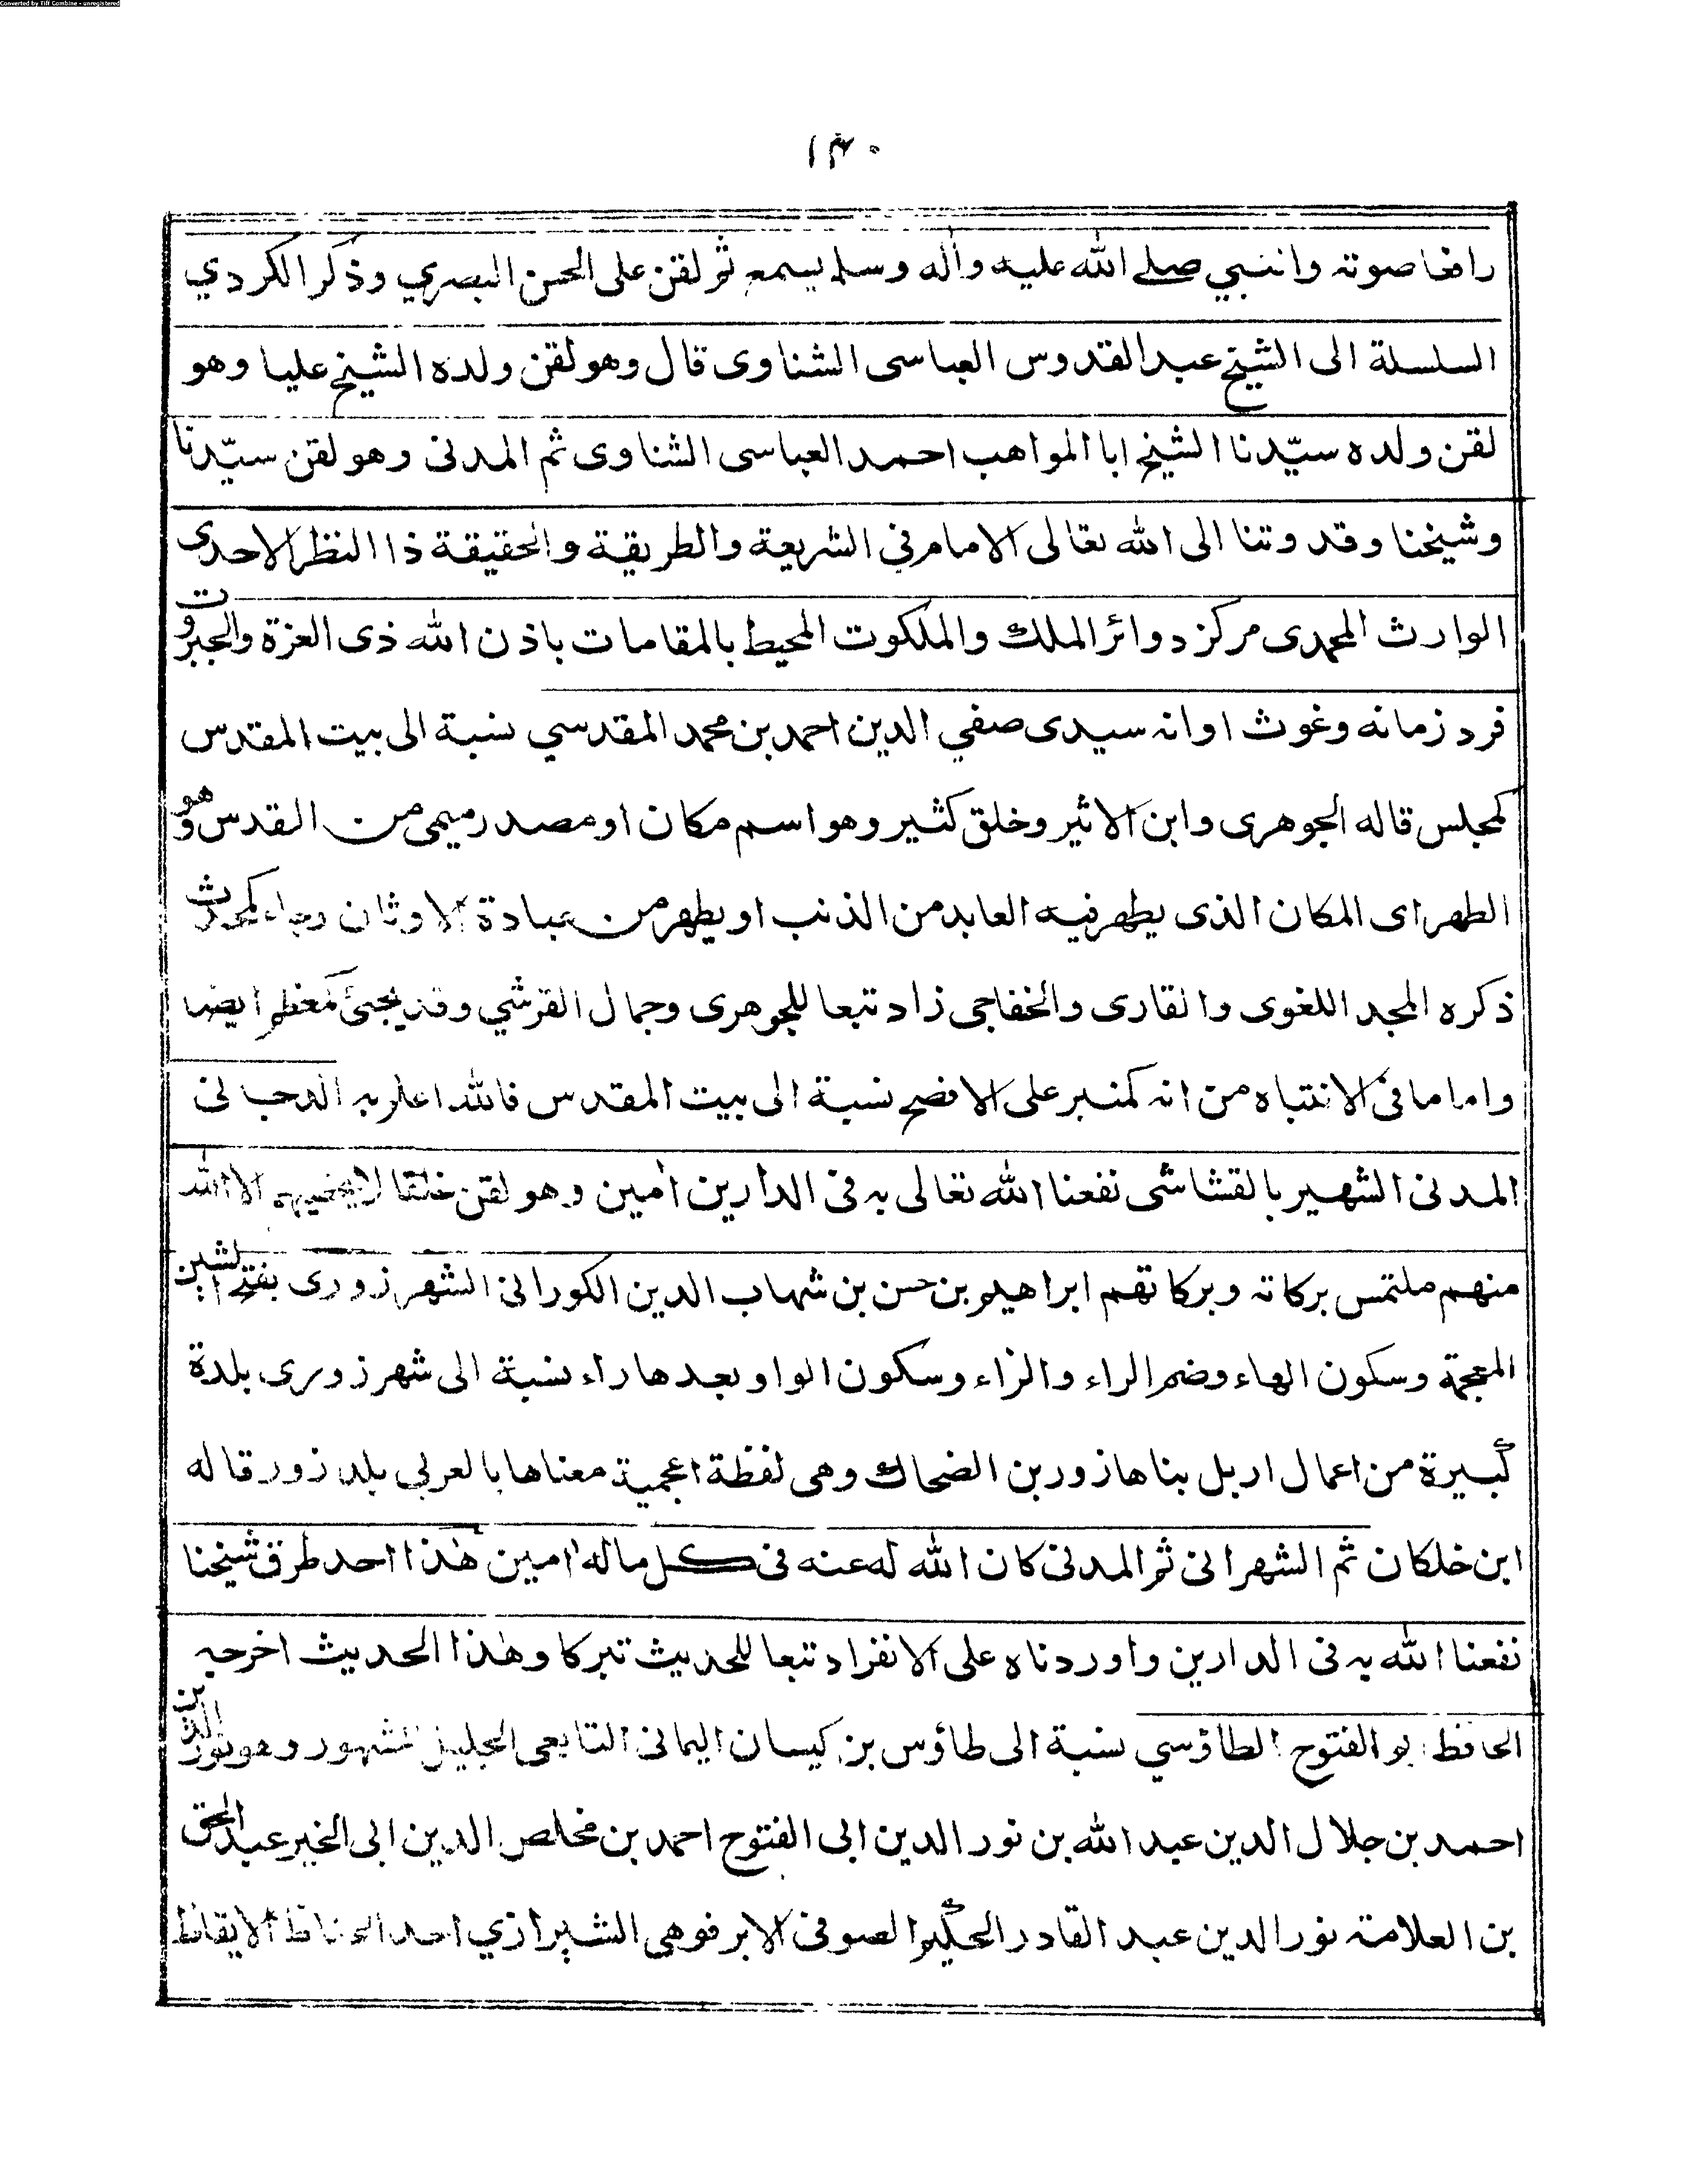 Converted by Tiff Combine - unregistered
١٣٠
رافعا صوته والنبي صلے الله عليه وآله وسلم يسمع ثم لقن على الحسن البصري وذكر الكردي
السلسلة الى الشيخ عبد القدوس العباسى الشناوى قال وهو لقن ولده الشيخ عليا وهو
لقن ولده سيّدنا الشيخ ابا المواهب احمد العباسى الشناوى ثم المدنى وهو لقن سيّدنا
وشيخنا وقدوتنا الى الله تعالى الامام فى الشريعة والطريقة والحقيقة ذا النظر الاحدى
الوارث المحمدى مركز دوائر الملك والملكوت المحيط بالمقامات باذن الله ذى العزة والجبروت
فرد زمانه وغوث اوانه سيدى صفي الدين احمد بن محمد المقدسي نسبة الى بيت المقدس
كمجلس قاله الجوهرى وابن الاثير وخلق كثير وهو اسم مكان او مصدر ميمى من القدس وهو
الطهر اى المكان الذى يطهر فيه العابد من الذنب او يطهر من عبادة الاوثان وجاء كمحدث
ذكره المجد اللغوى والقارى والخفاجى زاد تبعا للجوهرى وجمال القرشي وقد يجئ كمعظم ايضا
واما ما فى الانتباه من انه كمنبر على الافصح نسبة الى بيت المقدس فالله اعلم به الدجانى
المدنى الشهير بالقشاشى نفعنا الله تعالى به فى الدارين أمين وهو لقن خلقا لا يحصيهم الا الله
منهم ملتمس بركاته وبركاتهم ابراهيم بن حسن بن شهاب الدين الكورانى الشهرزورى بفتح الشين
المعجمة وسكون الهاء وضم الراء والزاء وسكون الواو بعدها راء نسبة الى شهرزورى بلدة
كبيرة من اعمال اربل بناها زور بن الضحاك وهى لفظة اعجمية معناها بالعربى بلد زور قاله
ابن خلكان ثم الشهرانى ثم المدنى كان الله له عنه فى كل ماله أمين هٰذا احد طرق شيخنا
نفعنا الله به فى الدارين واوردناه على الانفراد تبعا للحديث تبركا وهٰذا الحديث اخرجه
الحافظ ابو الفتوح الطاؤسي نسبة الى طاؤس بن كيسان اليمانى التابعى الجليل المشهور وهو نور الدين
احمد بن جلال الدين عبد الله بن نور الدين ابى الفتوح احمد بن مخلص الدين ابى الخير عبد الحق
بن العلامة نور الدين عبد القادر الحكيم الصوفى الابرقوهى الشيرازي احد الحفاظ الايقاظ